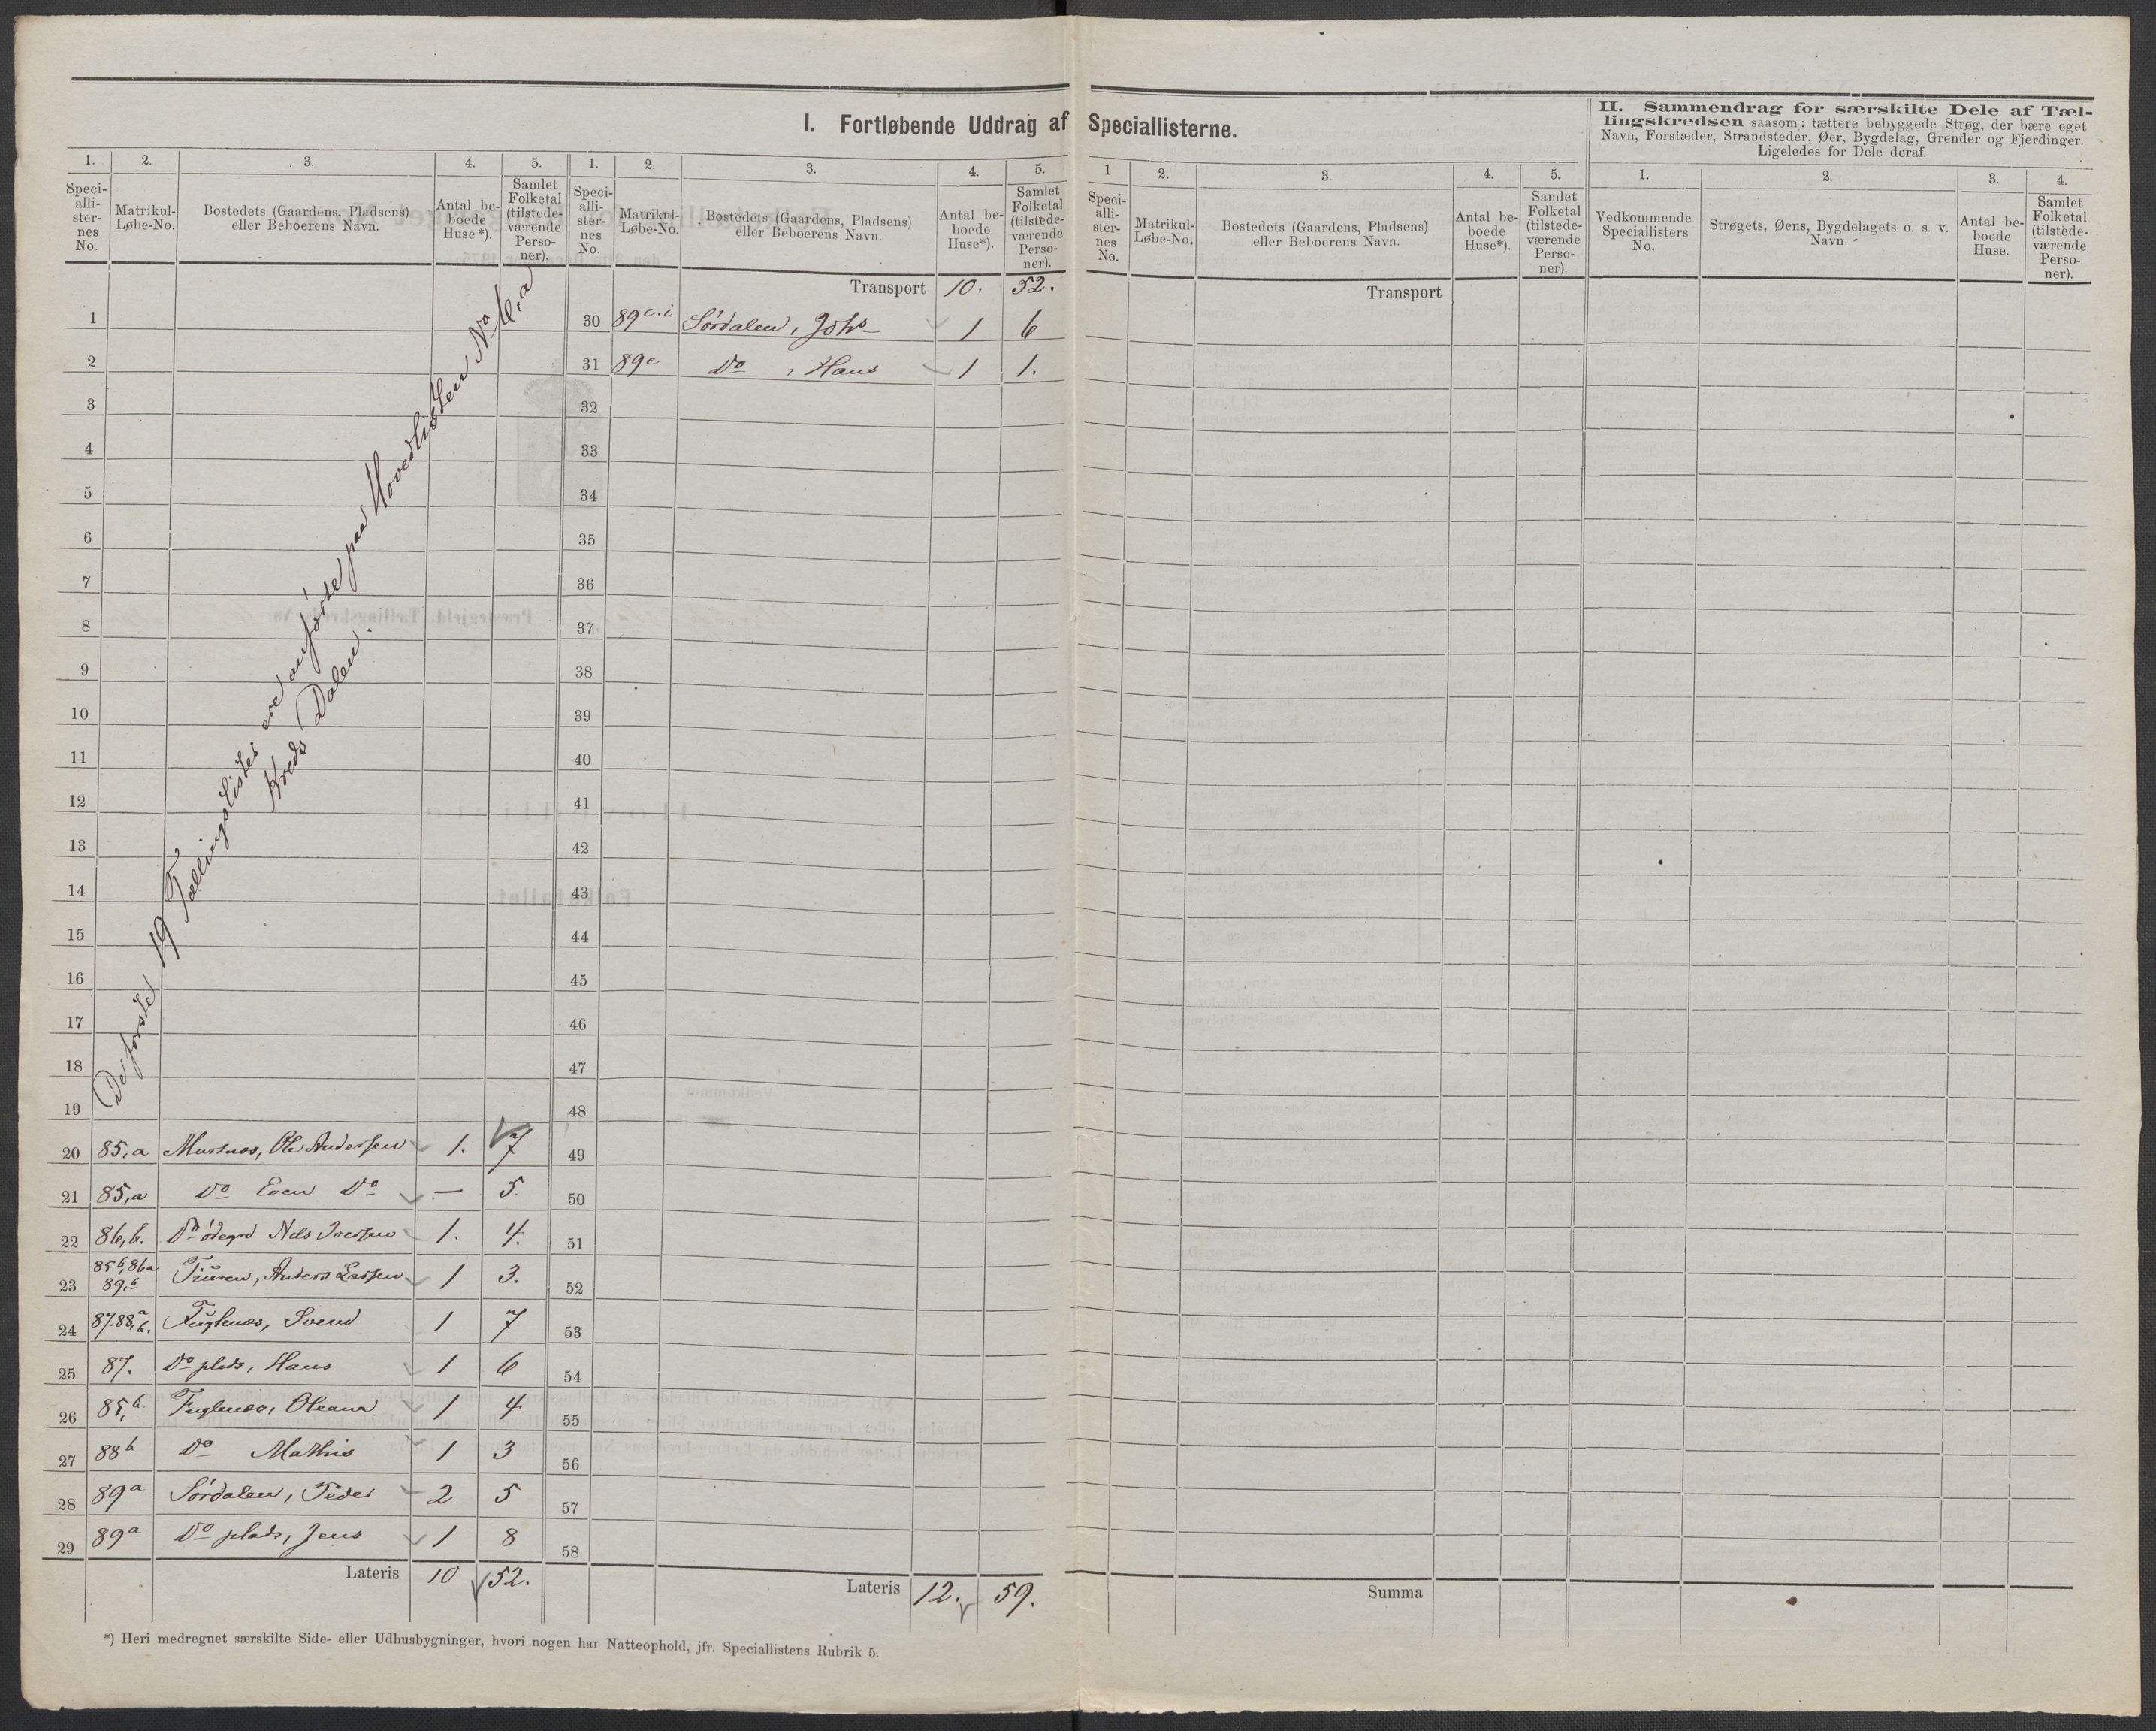 I. Fortløbende Uddrag af Speciallisterne.
II. Sammendrag for særskilte Dele af Tæl-
lingskredsen saasom: tættere bebyggede Strøg, der bære eget
Navn, Forstæder, Strandsteder, Øer, Bygdelag, Grender og Fjerdinger.
Ligeledes for Dele deraf.
1. 2. 3. 4. 5. 1. 2. 3. 4. 5. 1 2. 3. 4. 5. 1. 2. 3. 4.
Speci-
alli-
ster-
nes
No.
Matrikul-
Løbe-No.
Bostedets (Gaardens, Pladsens)
eller Beboerens Navn.
Antal be-
boede
Huse*).
Samlet
Folketal
(tilstede-
værende
Perso-
ner).
Speci-
alli-
ster-
nes
No.
Matrikul-
Løbe-No.
Bostedets (Gaardens, Pladsens)
eller Beboerens Navn.
Antal be-
boede
Huse*).
Samlet
Folketal
(tilstede-
værende
Perso-
ner).
Speci-
alli-
ster-
nes
No.
Matrikul-
Løbe-No.
Bostedets (Gaardens, Pladsens)
eller Beboerens Navn.
Antal be-
boede
Huse*).
Samlet
Folketal
(tilstede-
værende
Perso-
ner).
Vedkommende
Speciallisters
No.
Strøgets, Øens, Bygdelagets o. s. v.
Navn.
Antal be-
boede
Huse.
Samlet
Folketal
(tilstede-
værende
Perso-
ner).
De første 19 Tællingslister ere anførte paa Hovedlisten No 6,a
Kreds Dalen.
1
2
3
4
5
6
7
8
9
10
11
12
13
14
15
16
17
18
19
20 85,a Mursnes, Ole Andersen 1. 7
21 85,a Do Even Do — 5.
22 86,b. Do ødegrd Nils Iversen 1. 4.
23 85b,86a 89,b Tiuren, Anders Larsen 1 3.
24 87.88,a b. Fuglenes, Svend 1 7
25 87. Do plds, Hans 1 6
26 85,b Fuglenes, Oleana 1 4
27 88b Do Mathis 1 3
28 89a Sørdalen, Peder 2 5
29 89a Do plads, Jens 1 8
Lateris 10 52.
Transport 10. 52.
30 89c.i Sørdalen, Johs 1 6
31 89c Do , Hans 1 1.
32
33
34
35
36
37
38
39
40
41
42
43
44
45
46
47
48
49
50
51
52
53
54
55
56
57
58
Lateris 12. 59.
Transport
Summa
*) Heri medregnet særskilte Side- eller Udhusbygninger, hvori nogen har Natteophold, jfr. Speciallistens Rubrik 5.